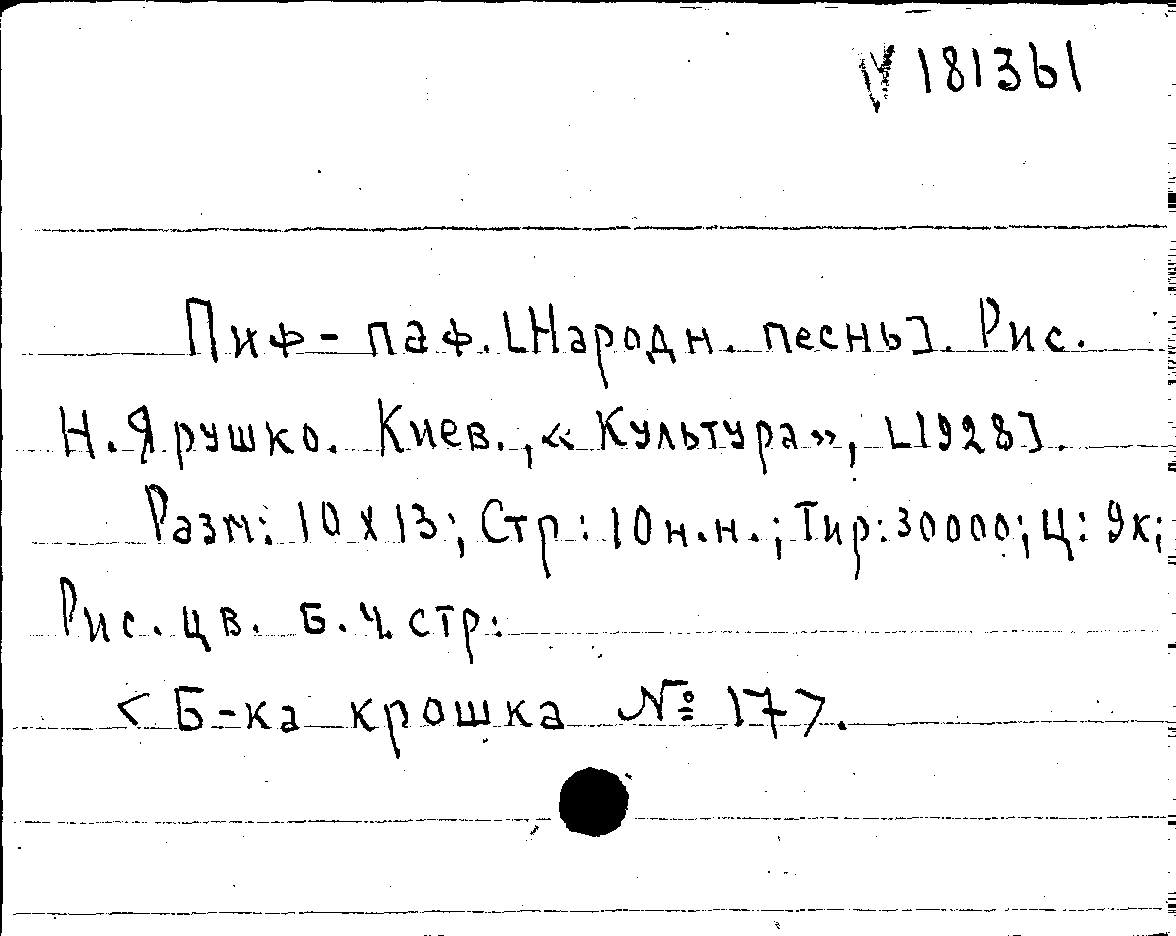 V 181361
Пиф-паф. [Народн. песнь]. Рис.
Н. Ярушко. Киев., «Культура», [1928].
Разм: 10х13; Стр: 10 н.н.; Тир: 30000; Ц: 9к;
Рис. цв. Б.ч. стр:
<Б-ка крошка № 17>.